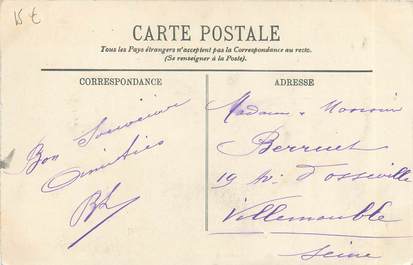 15 €
CARTE POSTALE
Tous les Pays étrangers n'acceptent pas la Correspondance au recto.
(Se renseigner à la Poste).
CORRESPONDANCE
ADRESSE
Bon Souvenir
Amitiés
Madame & Monsieur
Berruet
19 Av. d'Osseville
Villemomble
Seine